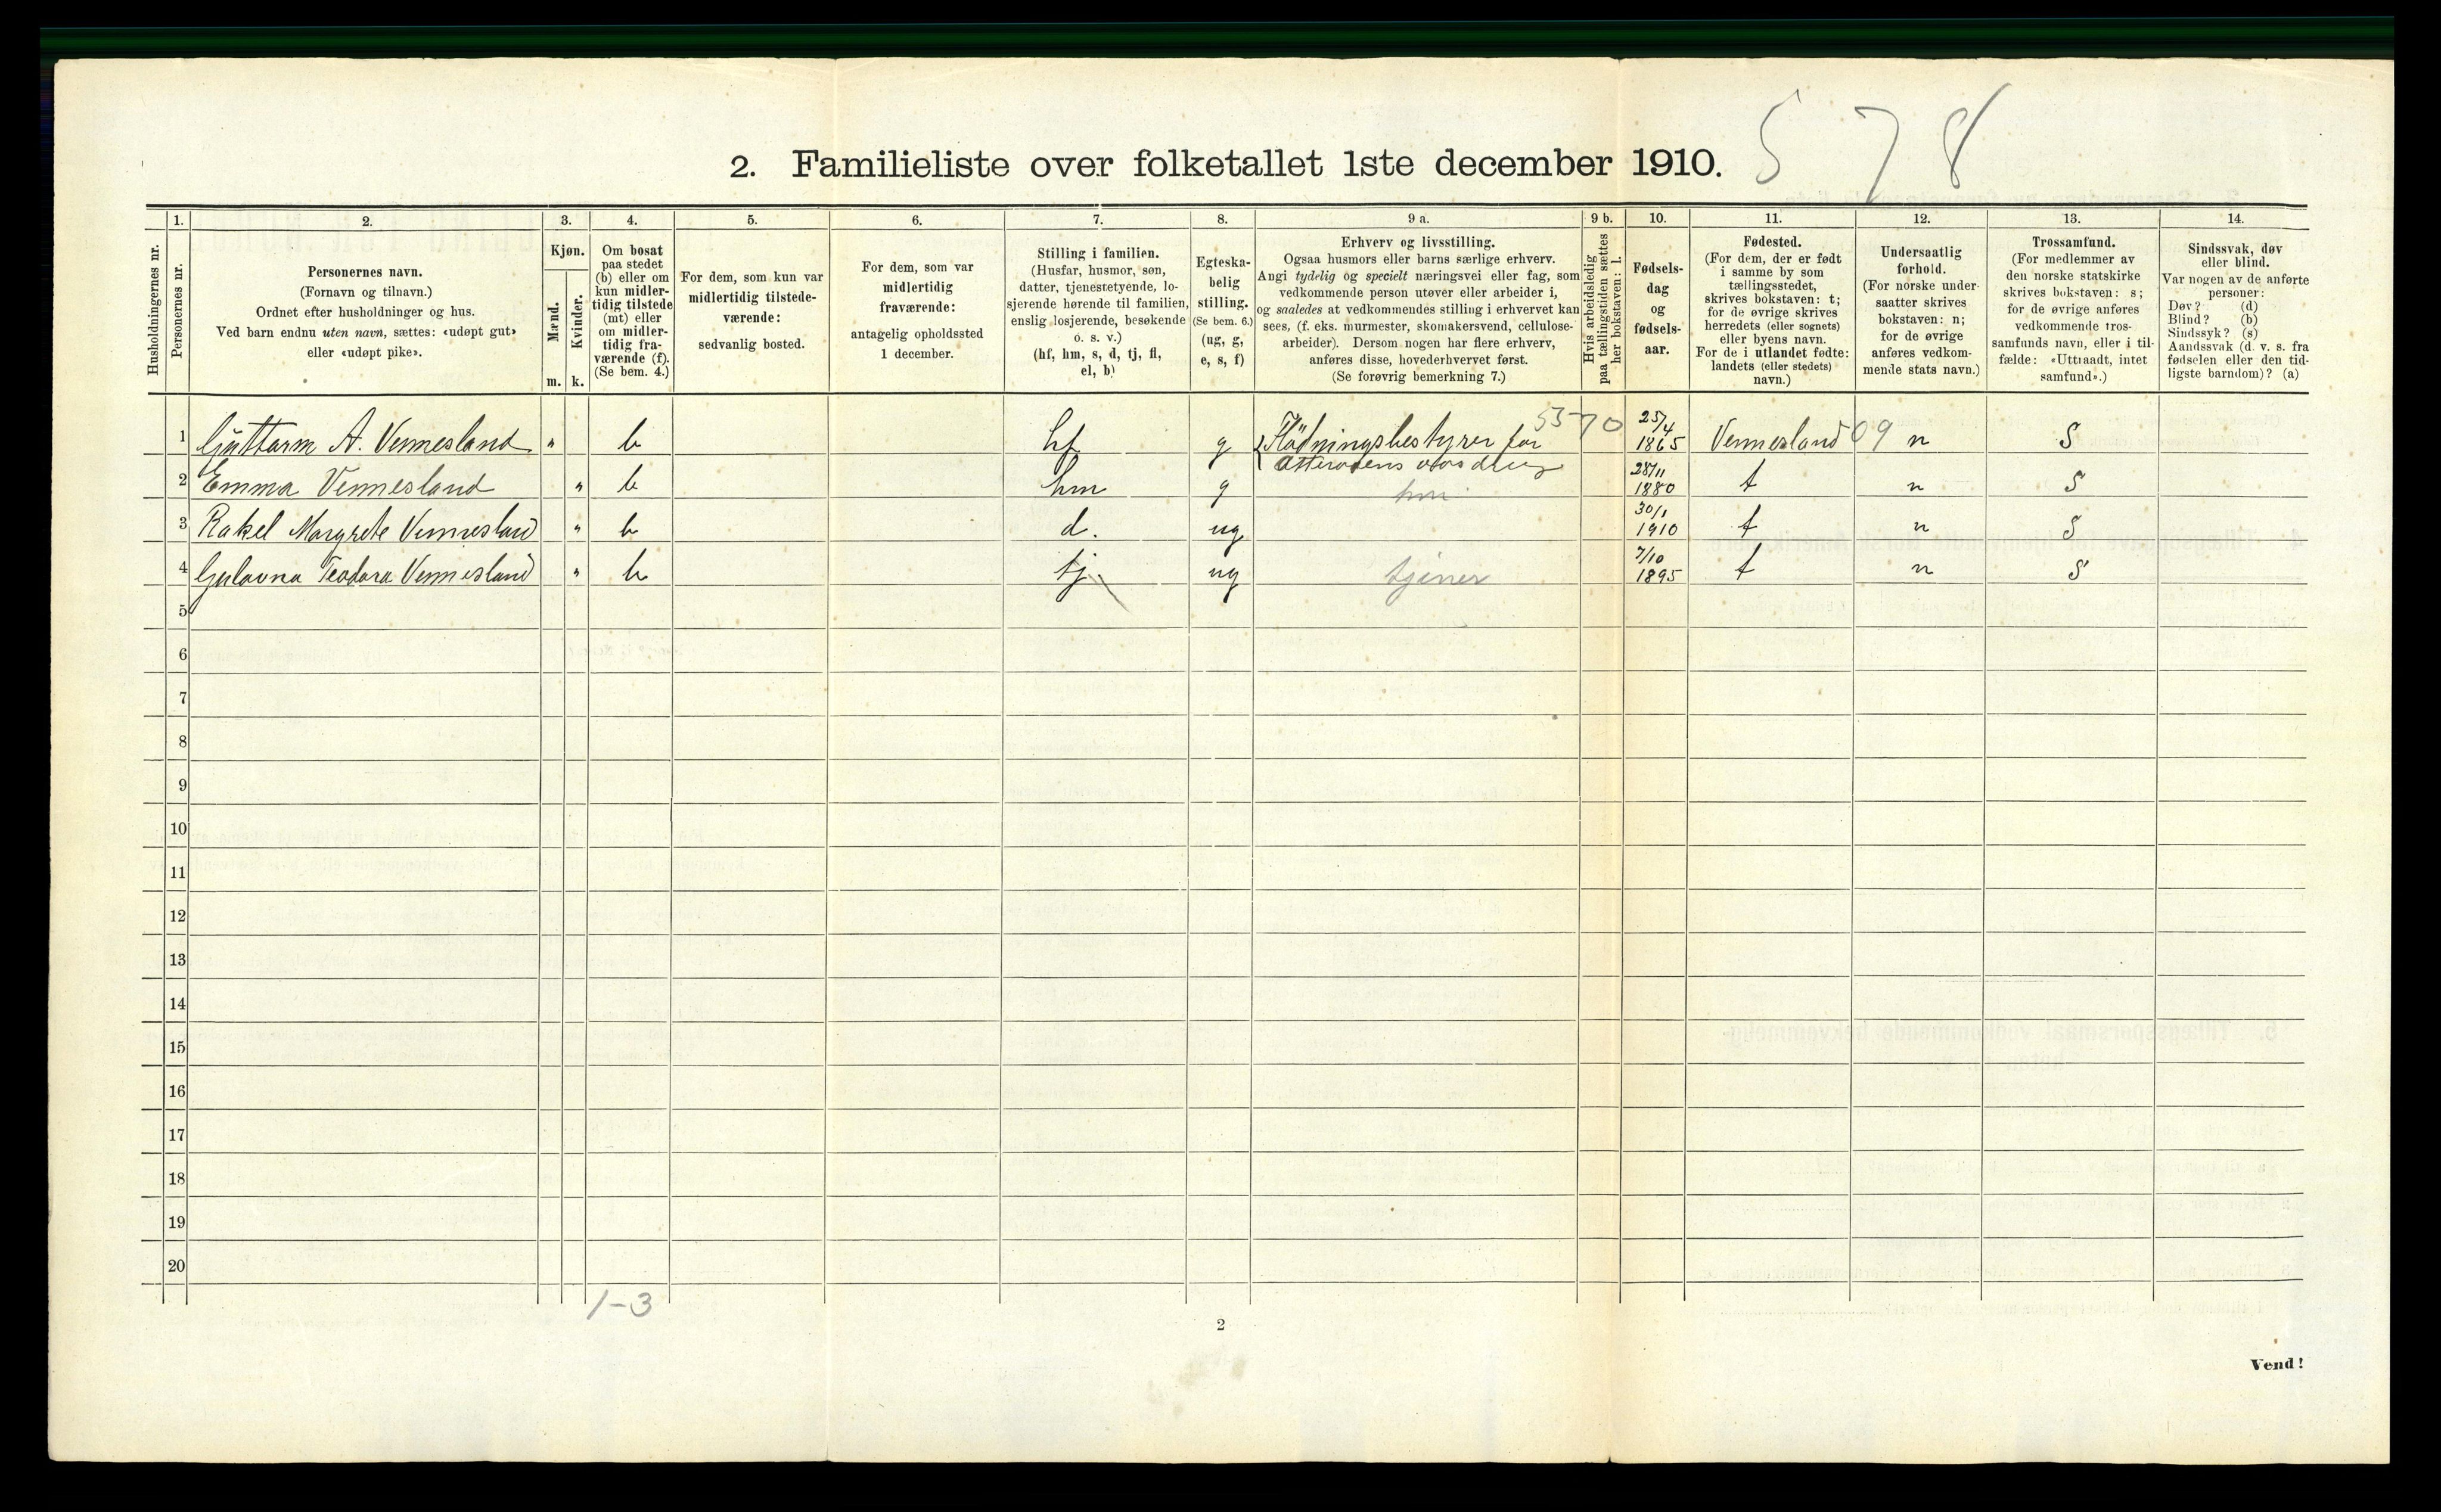 578
2. Familieliste over folketallet 1ste december 1910.
Husholdningernes nr.
1.
Personernes nr.
2.
Personernes navn.
(Fornavn og tilnavn.)
Ordnet efter husholdninger og hus.
Ved barn endnu uten navn, sættes: «udøpt gut»
eller «udøpt pike».
3.
Kjøn.
Mænd.
Kvinder.
m. k.
4.
Om bosat
paa stedet
(b) eller om
kun midler-
tidig tilstede
(mt) eller
om midler-
tidig fra-
værende (f).
(Se bem. 4.)
5.
For dem, som kun var
midlertidig tilstede-
værende:
sedvanlig bosted.
6.
For dem, som var
midlertidig
fraværende:
antagelig opholdssted
1 december.
7.
Stilling i familien.
(Husfar, husmor, søn,
datter, tjenestetyende, lo-
sjerende hørende til familien,
enslig losjerende, besøkende
o. s. v.)
(hf, hm, s, d, tj, fl,
el, b)
8.
Egteska-
belig
stilling.
(Se bem. 6.)
(ug, g,
e, s, f)
9 a.
Erhverv og livsstilling.
Ogsaa husmors eller barns særlige erhverv.
Angi tydelig og specielt næringsvei eller fag, som
vedkommende person utøver eller arbeider i,
og saaledes at vedkommendes stilling i erhvervet kan
sees, (f. eks. murmester, skomakersvend, cellulose-
arbeider). Dersom nogen har flere erhverv,
anføres disse, hovederhvervet først.
(Se forøvrig bemerkning 7.)
9 b.
Hvis arbeidsledig
paa tællingstiden sættes
her bokstaven: l.
10.
Fødsels-
dag
og
fødsels-
aar.
11.
Fødested.
(For dem, der er født
i samme by som
tællingsstedet,
skrives bokstaven: t;
for de øvrige skrives
herredets (eller sognets)
eller byens navn.
For de i utlandet fødte:
landets (eller stedets)
navn.)
12.
Undersaatlig
forhold.
(For norske under-
saatter skrives
bokstaven: n;
for de øvrige
anføres vedkom-
mende stats navn.)
13.
Trossamfund.
(For medlemmer av
den norske statskirke
skrives bokstaven: s;
for de øvrige anføres
vedkommende tros-
samfunds navn, eller i til-
fælde: «Uttraadt, intet
samfund».)
14.
Sindssvak, døv
eller blind.
Var nogen av de anførte
personer:
Døv? (d)
Blind? (b)
Sindssyk? (s)
Aandssvak (d. v. s. fra
fødselen eller den tid-
ligste barndom)? (a)
1 Guttorm A. Vennesland " b hf g Flödningsbestyrer for 5570 25/4 1865 Vennesland 09 n S
2 Emma Vennesland " b hm g hm 28/11 1880 t n S
3 Rakel Margrete Vennesland " b d. ug 30/1 1910 t n S
4 Teodora Vennesland " b tj ug tjener 7/10 1895 t n S
5
6
7
8
9
10
11
12
13
14
15
16
17
18
19
20
1-3
2
Vend!